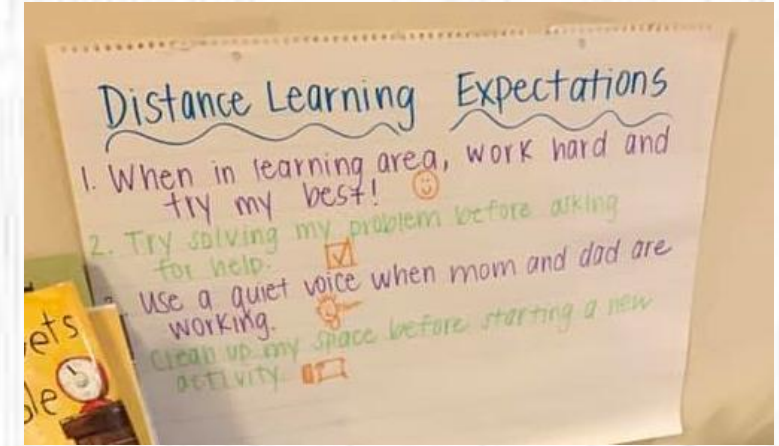 Distance Learning Expectations
1. When in learning area, work hard and
try my best!
2. Try solving my problem before asking
for help.
Use a quiet voice when mom and dad are
working.
Clean up my space before starting a new
activity.
ets
le